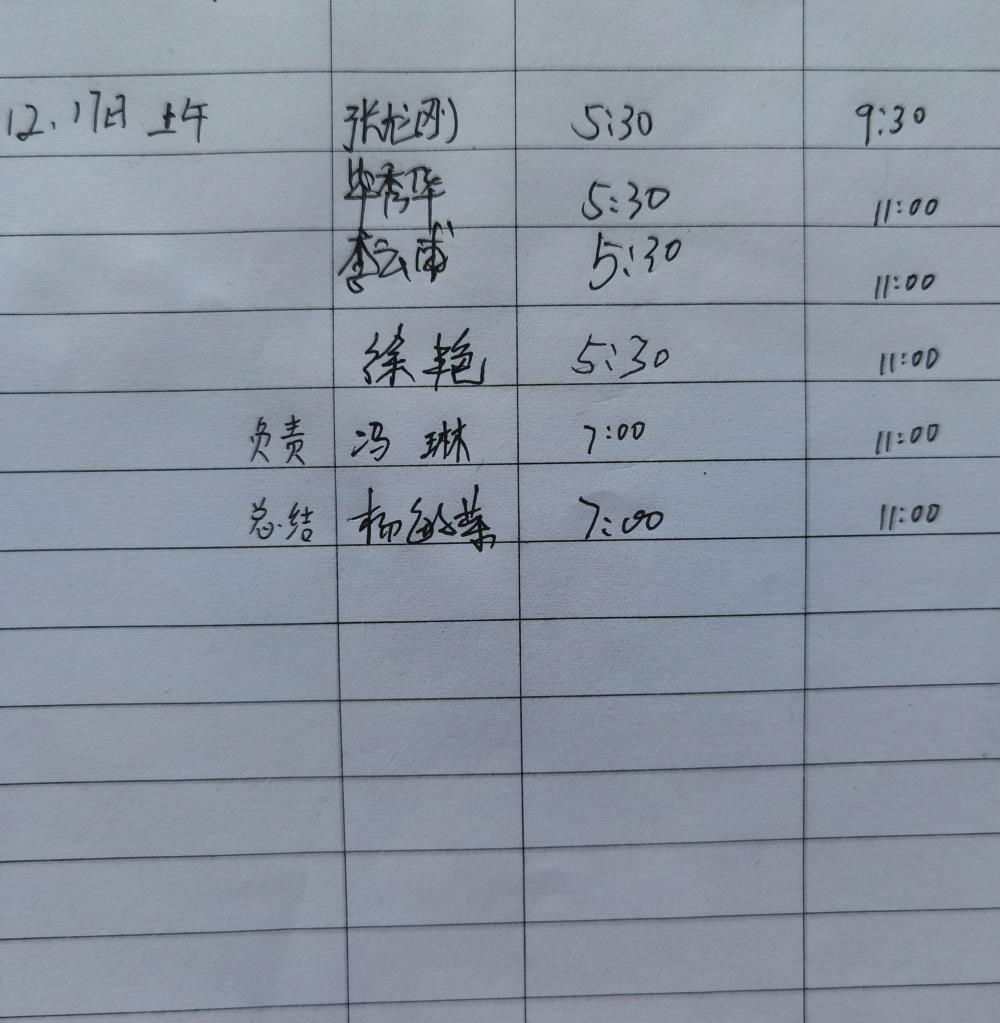 12.17日 上午 张龙刚 5:30 9:30
毕秀华 5:30 11:00
李云甫 5:30 11:00
徐艳 5:30 11:00
负责 冯琳 7:00 11:00
总结 杨敏叶 7:00 11:00